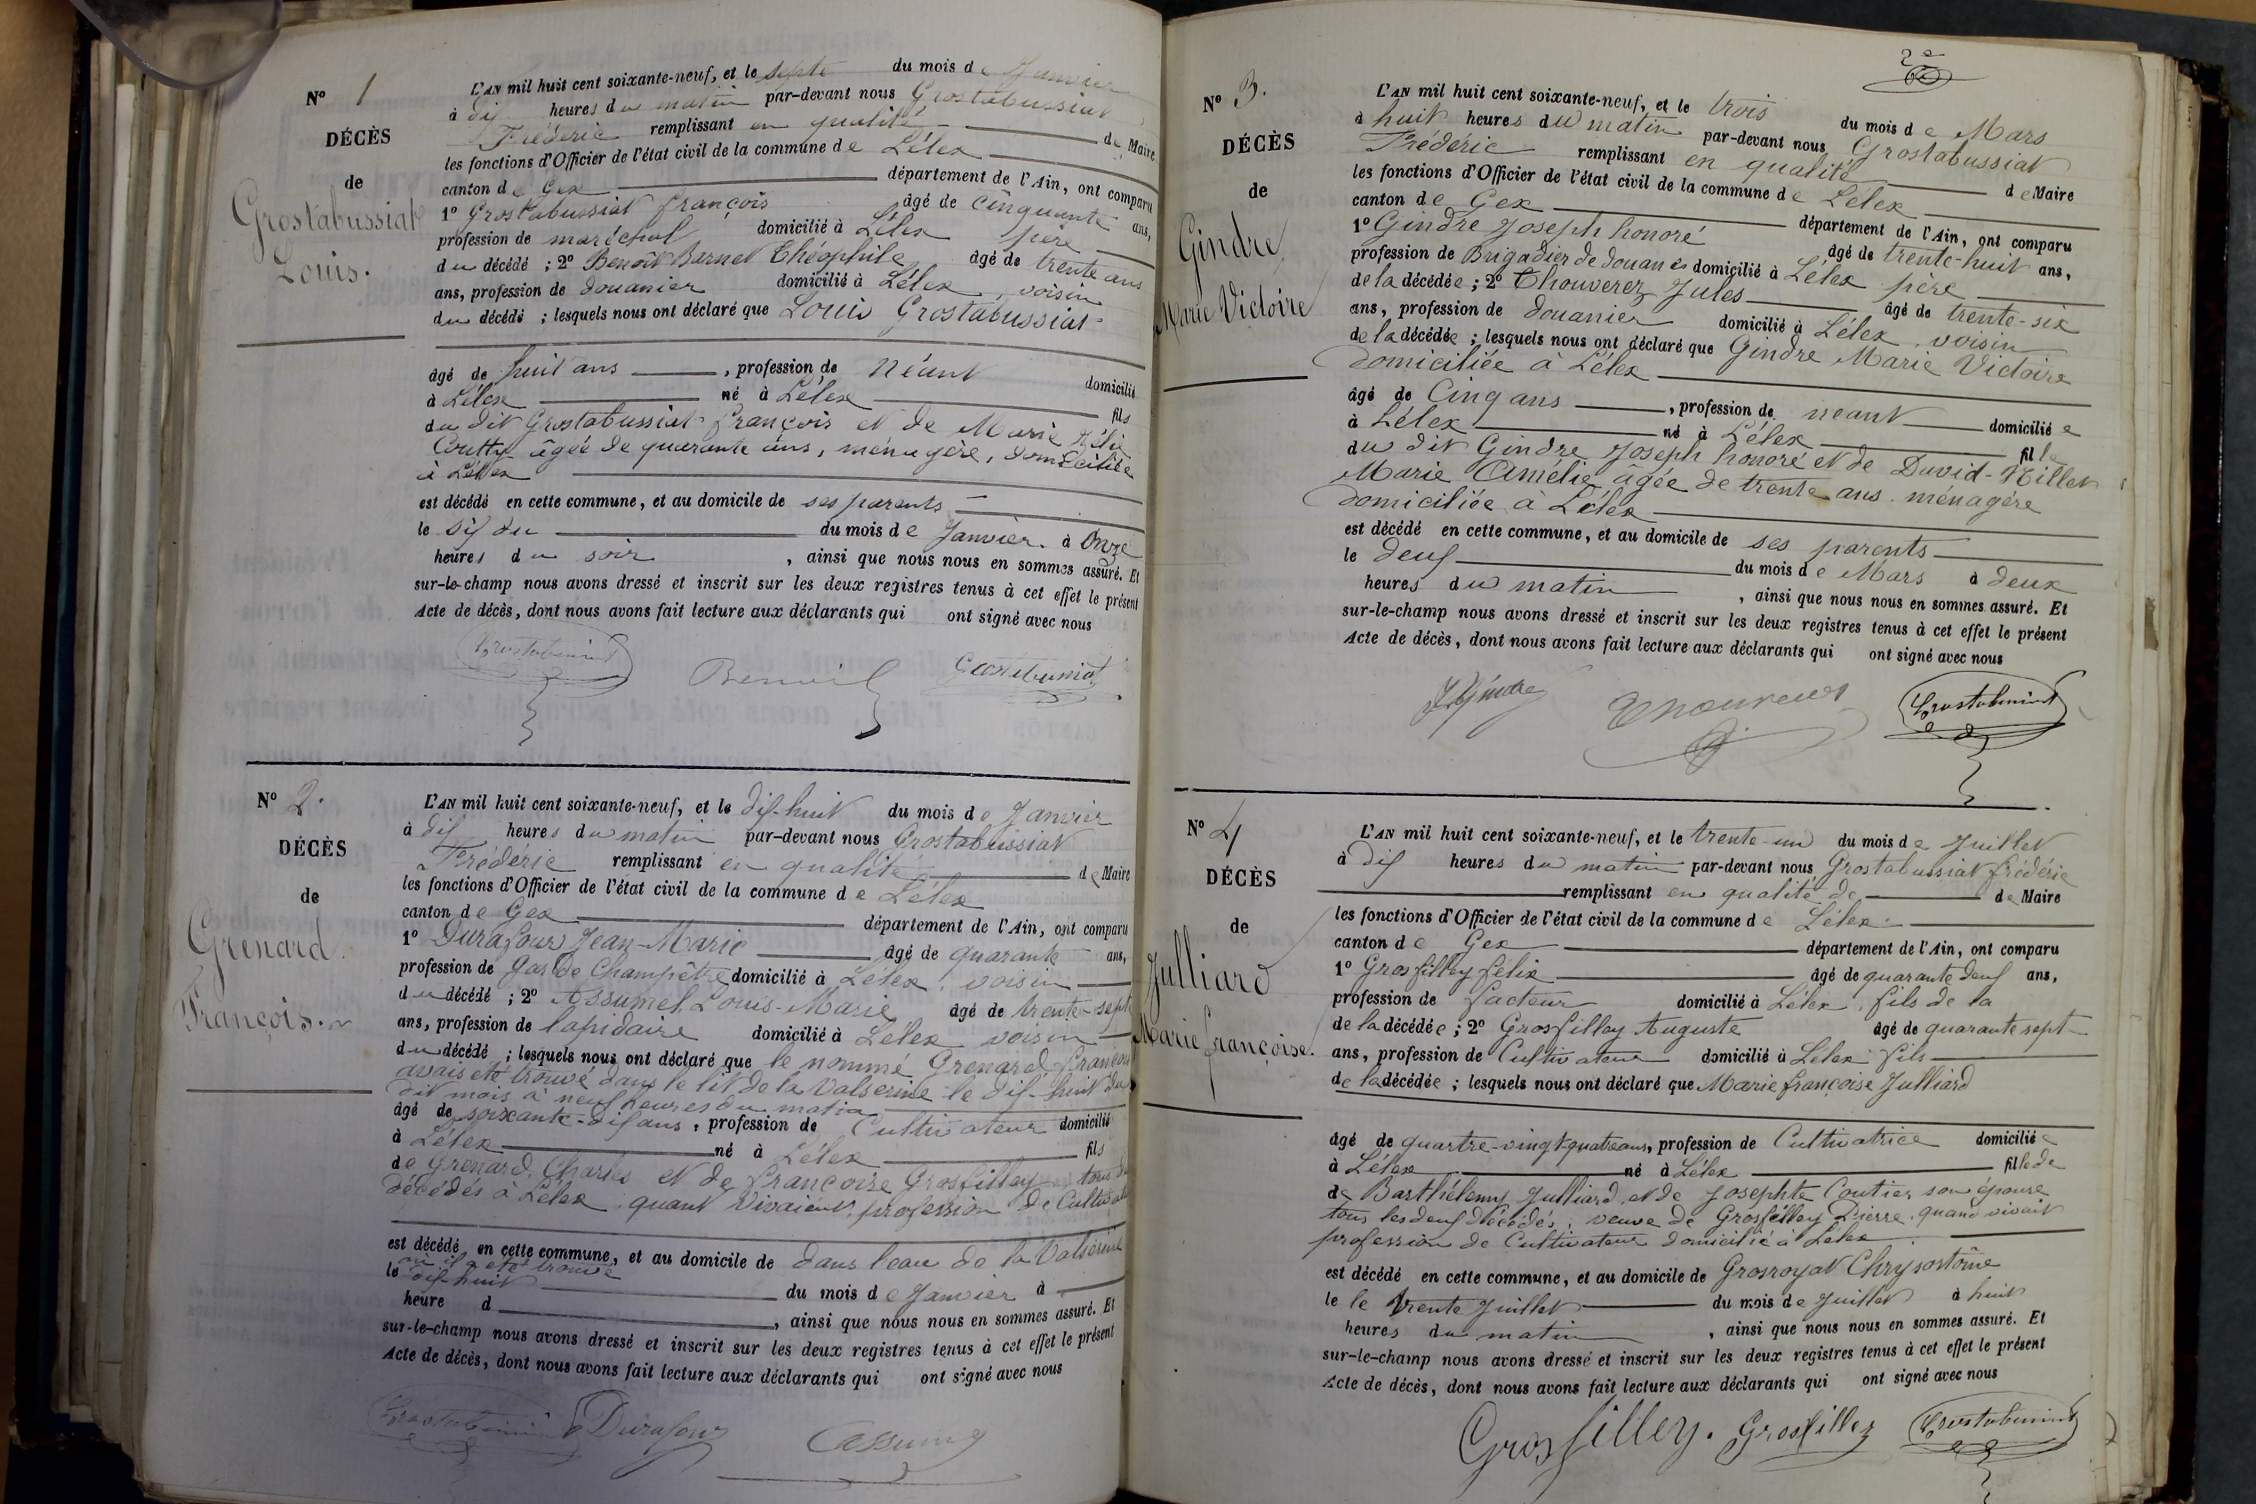 N° 1
DÉCÈS
de
Grostabussiat
Louis.
L'AN mil huit cent soixante-neuf, et le septe du mois de Janvier
à dix heures du matin par-devant nous Grostabussiat
Frédéric remplissant en qualité de Maire
les fonctions d'Officier de l'état civil de la commune de Lélex
canton de Gex département de l'Ain, ont comparu
1° Grostabussiat françois âgé de cinquante ans,
profession de maréchal domicilié à Lélex père
du décédé ; 2° Benoît Barnet Théophile âgé de trente ans
ans, profession de douanier domicilié à Lélex, voisin
du décédé ; lesquels nous ont déclaré que Louis Grostabussiat
âgé de huit ans, profession de Néant domicilié
à Lélex né à Lélex fils
du dit Grostabussiat françois et de Marie
Coutty âgée de quarante ans, ménagère, domiciliée
à Lélex
est décédé en cette commune, et au domicile de ses parents
le six du du mois de Janvier à Onze
heures du soir, ainsi que nous nous en sommes assuré. Et
sur-le-champ nous avons dressé et inscrit sur les deux registres tenus à cet effet le présent
Acte de décès, dont nous avons fait lecture aux déclarants qui ont signé avec nous
Grostabussiat Benoit Grostabussiat
N° 2.
DÉCÈS
de
Grenard
François.
L'AN mil huit cent soixante-neuf, et le dix-huit du mois de Janvier
à dix heures du matin par-devant nous Grostabussiat
Frédéric remplissant en qualité de Maire
les fonctions d'Officier de l'état civil de la commune de Lélex
canton de Gex département de l'Ain, ont comparu
1° Durafour Jean-Marie âgé de quarante ans,
profession de Garde Champêtre domicilié à Lélex, voisin
du décédé ; 2° Assumel Louis-Marie âgé de trente-sept
ans, profession de lapidaire domicilié à Lélex voisin
du décédé ; lesquels nous ont déclaré que le nommé Grenard françois
avais été trouvé dans le lit de la Valserine le dix-huit du
dit mois à neuf heures du matin
âgé de soixante-dix ans, profession de Cultivateur domicilié
à Lélex né à Lélex fils
de Grenard Charles et de françoise Grosfilley tous
décédés à Lélex quant vivaient profession de Cultivateur
est décédé en cette commune, et au domicile de dans l'eau de la Valserine
où il a été trouvé
le dix huit du mois de Janvier à
heure d, ainsi que nous nous en sommes assuré. Et
sur-le-champ nous avons dressé et inscrit sur les deux registres tenus à cet effet le présent
Acte de décès, dont nous avons fait lecture aux déclarants qui ont signé avec nous
Grostabussiat Durafour Assumel
2e
N° 3.
DÉCÈS
de
Gindre
Marie Victoire
L'AN mil huit cent soixante-neuf, et le trois du mois de Mars
à huit heures du matin par-devant nous Grostabussiat
Frédéric remplissant en qualité de Maire
les fonctions d'Officier de l'état civil de la commune de Lélex
canton de Gex département de l'Ain, ont comparu
1° Gindre Joseph honoré âgé de trente-huit ans,
profession de Brigadier de douanes domicilié à Lélex père
de la décédée ; 2° Thouverez Jules âgé de trente-six
ans, profession de douanier domicilié à Lélex, voisin
de la décédée ; lesquels nous ont déclaré que Gindre Marie Victoire
domiciliée à Lélex
âgé de Cinq ans, profession de neant domiciliée
à Lélex né à Lélex fille
du dit Gindre Joseph honoré et de David-Nillet
Marie Amélie âgée de trente ans ménagère
domiciliée à Lélex
est décédé en cette commune, et au domicile de ses parents
le deux du mois de Mars à deux
heures du matin, ainsi que nous nous en sommes assuré. Et
sur-le-champ nous avons dressé et inscrit sur les deux registres tenus à cet effet le présent
Acte de décès, dont nous avons fait lecture aux déclarants qui ont signé avec nous
Gindre Thouverez Grostabussiat
N° 4
DÉCÈS
de
Julliard
Marie françoise.
L'AN mil huit cent soixante-neuf, et le trente-un du mois de Juillet
à dix heures du matin par-devant nous Grostabussiat frédéric
remplissant en qualité de de Maire
les fonctions d'Officier de l'état civil de la commune de Lélex
canton de Gex département de l'Ain, ont comparu
1° Grosfilley felix âgé de quarante deux ans,
profession de facteur domicilié à Lélex, fils de la
de la décédée ; 2° Grosfilley Auguste âgé de quarante sept
ans, profession de Cultivateur domicilié à Lélex fils
de la décédée ; lesquels nous ont déclaré que Marie françoise Julliard
âgé de quartre-vingt-quatre ans, profession de Cultivatrice domiciliée
à Lélex né à Lélex fille de
de Barthélemy Julliard et de Josephte Coutier son épouse
tous les deux décédés, veuve de Grosfilley Pierre quand vivait
profession de Cultivateur domicilié à Lélex
est décédé en cette commune, et au domicile de Grosroyat Chrysostôme
le le trente Juillet du mois de Juillet à huit
heures du matin, ainsi que nous nous en sommes assuré. Et
sur-le-champ nous avons dressé et inscrit sur les deux registres tenus à cet effet le présent
Acte de décès, dont nous avons fait lecture aux déclarants qui ont signé avec nous
Grosfilley. Grosfilley Grostabussiat